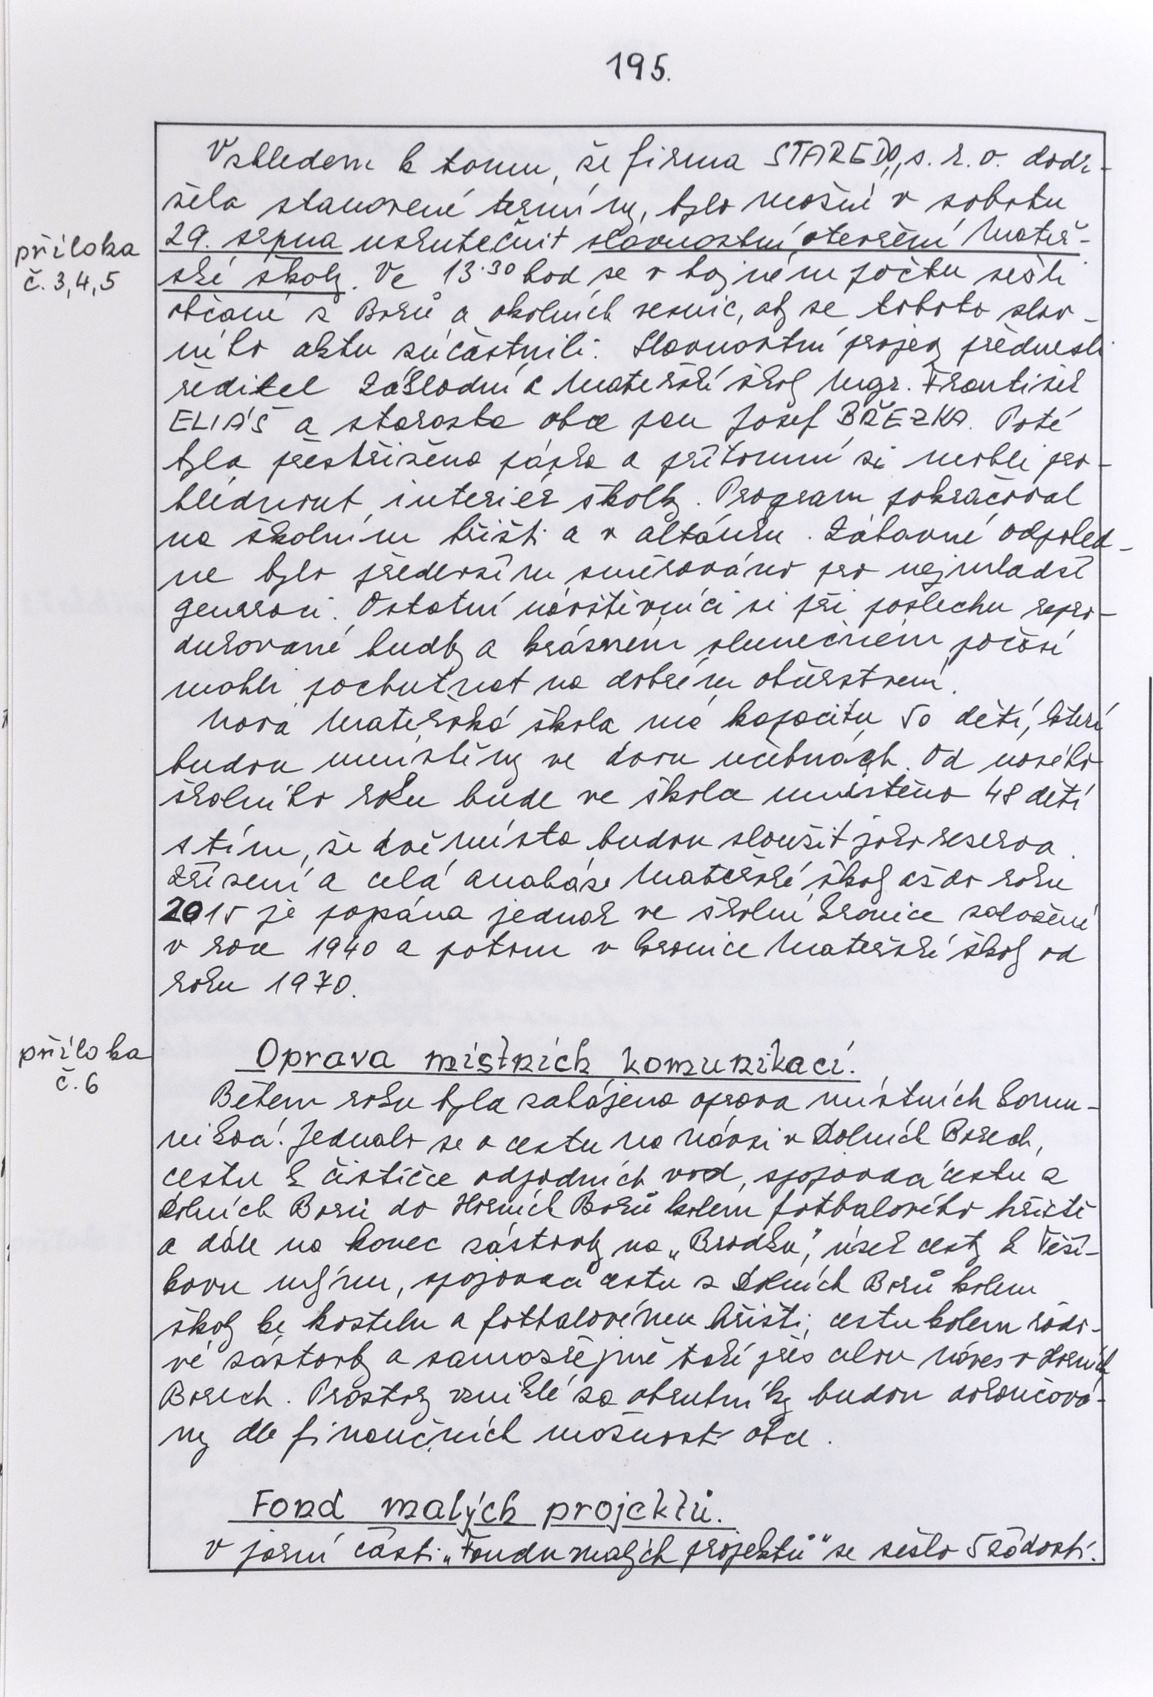 195.
Vzhledem k tomu, že firma STAREDO, s. r. o. dodr-
žela stanovené termíny, bylo možné v sobotu
příloha
č. 3, 4, 5
29. srpna uskutečnit slavnostní otevření Mateř-
ské školy. Ve 13.30 hod se v hojném počtu sešli
občané z Borů a okolních vesnic, aby se tohoto slav-
ného aktu zúčastnili. Slavnostní projev přednesli
ředitel Základní a Mateřské školy Mgr. František
ELIÁŠ a starosta obce pan Josef BŘEZKA. Poté
byla přestřižena páska a přítomní si mohli pro-
hlédnout interiér školky. Program pokračoval
na školním hřišti a v altánku. Zábavné odpoled-
ne bylo především směrováno pro nejmladší
generaci. Ostatní návštěvníci si při poslechu repro-
dukované hudby a krásném slunečném počasí
mohli pochutnat na dobrém občerstvení.
Nová Mateřská škola má kapacitu 50 dětí, které
budou umístěny ve dvou učebnách. Od nového
školního roku bude ve škola umístěno 48 dětí
s tím, že dvě místa budou sloužit jako reserva.
Zřízení a celá anabáze Mateřské školy až do roku
2015 je popsána jednak ve školní kronice založené
v roce 1940 a potom v kronice Mateřské školy od
roku 1970.
příloha
č. 6
Oprava místních komunikací.
Během roku byla zahájena oprava místních komu-
nikací. Jednalo se o cestu na návsi v Dolních Borech,
cestu k čističce odpadních vod, spojovací cestu z
Dolních Borů do Horních Borů kolem fotbalového hřiště
a dále na konec zástavby na „Brodku", úsek cesty k Těší-
kovu mlýnu, spojovací cestu z Dolních Borů kolem
školy ke kostelu a fotbalovému hřišti, cestu kolem řado-
vé zástavby a samozřejmě také přes celou náves v Horních
Borech. Prostory vzniklé za obrubníky budou dokončová-
ny dle finančních možností obce.
Fond malých projektů.
V jarní části „Fondu malých projektů" se sešlo 5 žádostí.